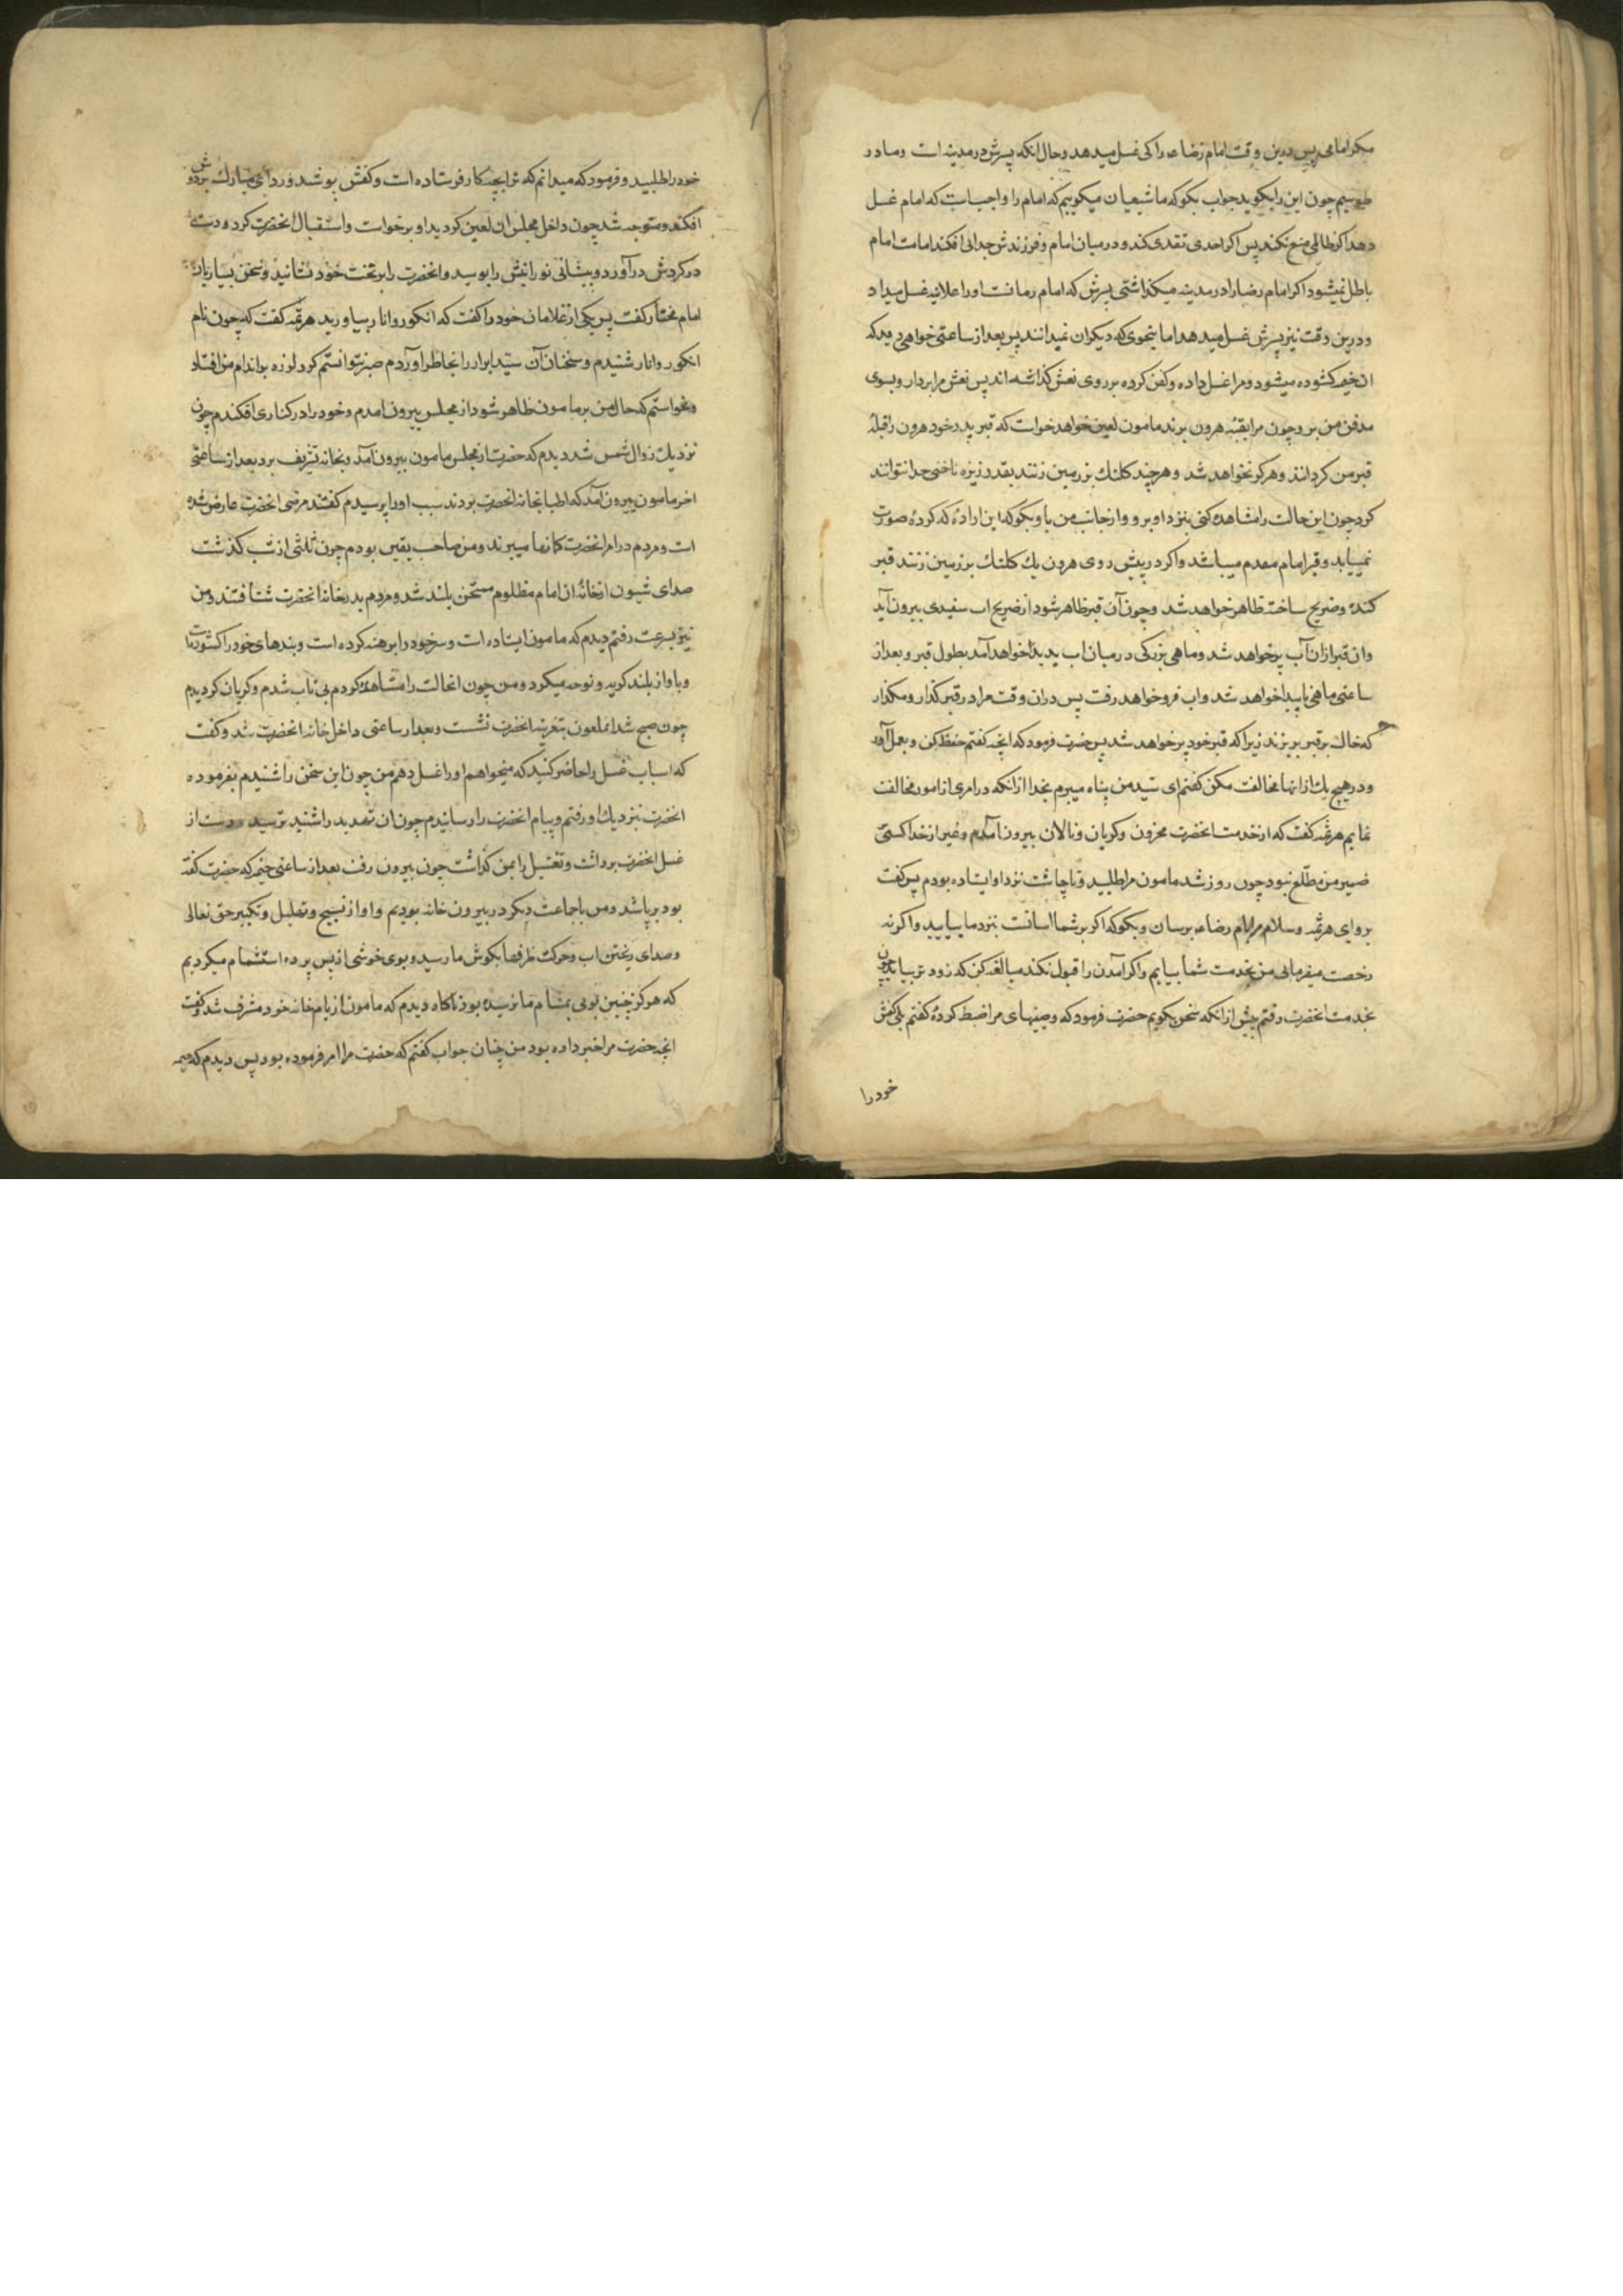 مکر امام پس درین وقت امام رضاء را کی غسل میدهد وحال انکه پسرش در مدینه است وما در
طوسیم چون این را بکوید جواب بکو که ما شیعیان میکوییم که امام را واجب است که امام غسل
دهد اکر ظالمی منع نکند پس اکر احدی تعدی کند و در میان امام وفرزندش جدائی افکند امامت امام
باطل نمیشود اکر امام رضا را در مدینه میکذاشتی پسرش که امام زمانست او را علانیه غسل میداد
ودرین وقت نیز پسرش غسل میدهد اما بنحوی که دیکران نمیدانند پس بعد از ساعتی خواهی دید که
ان خیمه کشوده میشود ومرا غسل داده وکفن کرده بر روی نعش کذاشته اند پس نعش مرا بردار وبسوی
مدفن من بر وچون مرا بقبه هرون برند مامون لعین خواهد خواست که قبر پدر خود هرون را قبله
قبر من کرداند وهرکز نخواهد شد وهرچند کلنك بر زمین زنند بقدر ریزه ناخنی جدا نتوانند
کرد چون این حالت را مشاهده کنی بنزد او برو واز جانب من باو بکو که این اراده که کردهٔ صورت
نمییابد وقبر امام مقدم میباشد واکر در پیش روی هرون یك کلنك بر زمین زنند قبر
کنده وضریح ساخته ظاهر خواهد شد وچون آن قبر ظاهر شود از ضریح اب سفیدی بیرون آید
وان قبر ازان آب پر خواهد شد وماهی بزرکی در میان اب پدید خواهد آمد بطول قبر وبعد از
ساعتی ماهی ناپیدا خواهد شد واب فرو خواهد رفت پس دران وقت مرا در قبر کذار ومکذار
که خاك بر قبر بریزند زیرا که قبر خود پر خواهد شد پس حضرت فرمود که انچه کفتم حفظ کن وبعمل آور
ودر هیچ یك از انها مخالفت مکن کفتم ای سید من پناه میبرم بخدا از انکه در امری از امور مخالفت
نمایم هرثمه کفت که از خدمت انحضرت محزون وکریان ونالان بیرون آمدم وغیر از خدا کسی
ضمیر من مطلع نبود چون روز شد مامون مرا طلبید وتا چاشت نزد او ایستاده بودم پس کفت
برو ای هرثمه وسلام مرا بامام رضاء برسان وبکو که اکر بر شما اسانست بنزد ما بیایید واکر نه
رخصت میفرمائی من بخدمت شما بیایم واکر آمدن را قبول نکند مبالغه کن که زودتر بیاید چون
بخدمت انحضرت رفتم پیش از انکه سخن بکویم حضرت فرمود که وصیتهای مرا ضبط کردهٔ کفتم بلی کفش
خود را
خود را طلبید وفرمود که میدانم که ترا بچه کار فرستاده است وکفش پوشید وردای مبارك بر دوش
افکند ومتوجه شد چون داخل مجلس ان لعین کردید او برخواست واستقبال انحضرت کرد ودست
در کردنش در آورد وپیشانی نورانیش را بوسید وانحضرت را بر تخت خود نشانید وسخن بسیار بان
امام مختار کفت پس یکی از غلامان خود را کفت که انکور وانار بیاورید هرثمه کفت که چون نام
انکور وانار شنیدم وسخنان آن سید ابرار را بخاطر آوردم صبر نتوانستم کرد لرزه بر اندام من افتاد
ونخواستم که حال من بر مامون ظاهر شود از مجلس بیرون امدم وخود را در کناری افکندم چون
نزدیك زوال شمس شد دیدم که حضرت از مجلس مامون بیرون آمد وبخانه تشریف برد بعد از ساعتی
اخر مامون بیرون آمد که اطبا بخانه انحضرت بردند سبب او را پرسیدم کفتند مرضی انحضرت عارض شده
است ومردم در امر انحضرت کمانها میبردند ومن صاحب یقین بودم چون ثلثی از شب کذشت
صدای شیون از خانه ان امام مظلوم ممتحن بلند شد ومردم بدر خانه انحضرت شتافتند ومن
نیز بسرعت رفتم دیدم که مامون ایستاده است وسر خود را برهنه کرده است وبندهای خود را کشوده
وباواز بلند کریه ونوحه میکرد ومن چون انحالت را مشاهده کردم بی تاب شدم وکریان کردیدم
چون صبح شد انملعون بتعزیه انحضرت نشست وبعد از ساعتی داخل خانه انحضرت شد وکفت
که اسباب غسل را حاضر کنید که میخواهم او را غسل دهم من چون این سخن را شنیدم بفرموده
انحضرت بنزدیك او رفتم وپیام انحضرت را رسانیدم چون ان تهدید را شنید ترسید ودست از
غسل انحضرت برداشت وتغسیل را بمن کذاشت چون بیرون رفت بعد از ساعتی خیمه که حضرت کفته
بود برپا شد ومن با جماعت دیکر در بیرون خانه بودیم واواز تسبیح وتهلیل وتکبیر حق تعالی
وصدای ریختن اب وحرکت ظرفها بکوش ما رسید وبوی خوشی از پس پرده استشمام میکردیم
که هرکز چنین بوئی بمشام ما نرسیده بود ناکاه دیدم که مامون از بام خانه خود مشرف شد وکفت
انچه حضرت مرا خبر داده بود من چنان جواب کفتم که حضرت مرا امر فرموده بود پس دیدم که خیمه